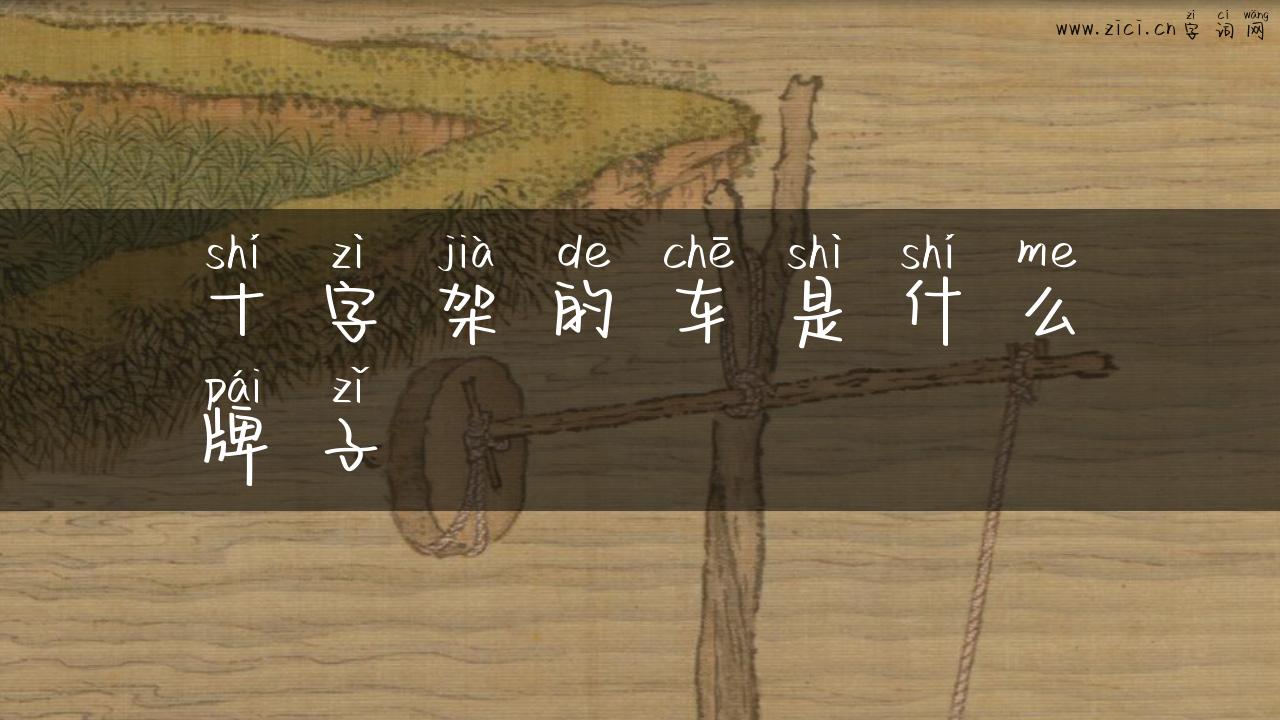 zì cí wǎng
www.zici.cn 字 词 网
shí zì jià de chē shì shí me
十 字 架 的 车 是 什 么
pái zǐ
牌 子